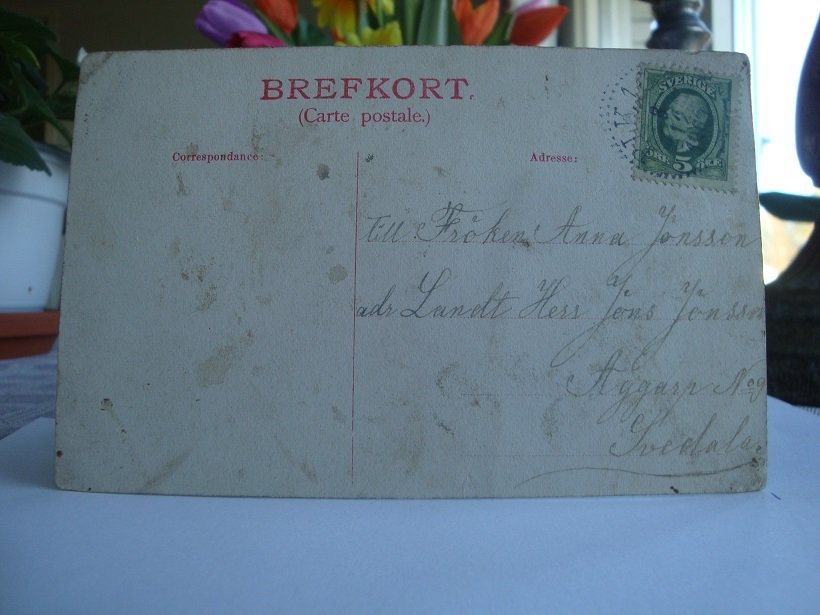 BREFKORT.
(Carte postale.)
SVERIGE
ÖRE 5 ÖRE
Correspondance:
Adresse:
till Fröken Anna Jönsson
adr Landt Herr Jöns Jönsson
Aggarp No 9
Svedala.